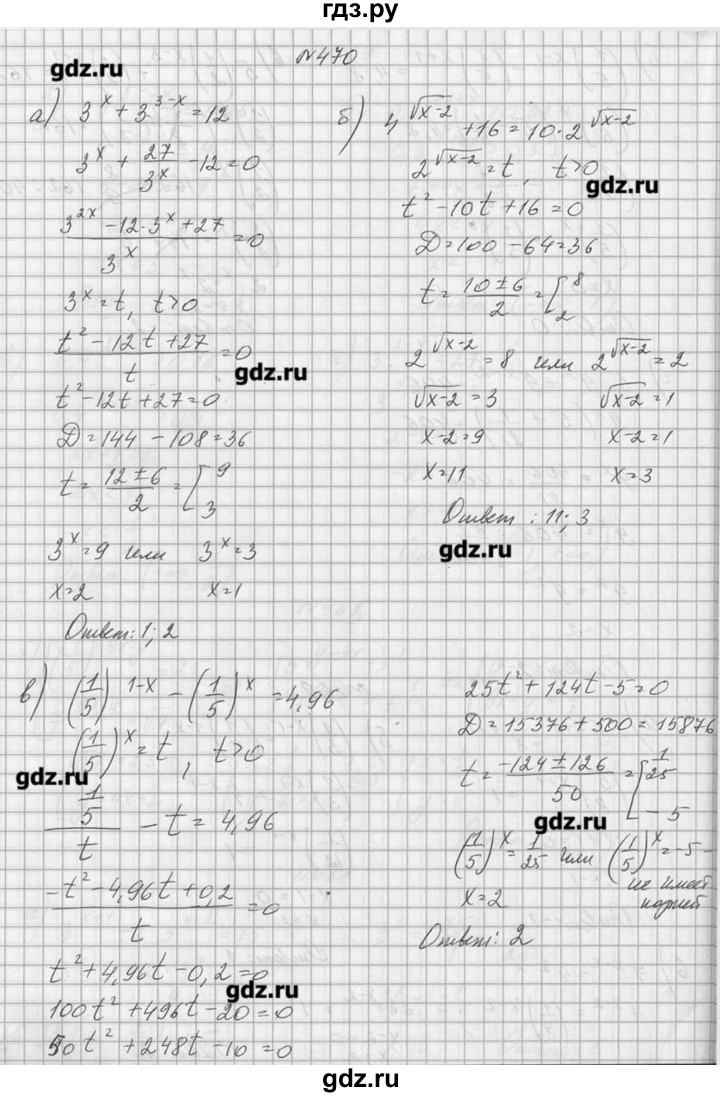 гдз.ру
№470
gdz.ru
а) 3^x + 3^(3-x) = 12
3^x + 27/3^x - 12 = 0
(3^(2x) - 12·3^x + 27)/3^x = 0
3^x = t, t>0
(t² - 12t + 27)/t = 0
gdz.ru
t² - 12t + 27 = 0
D = 144 - 108 = 36
t = (12 ± 6)/2 = [9 3
3^x = 9 или 3^x = 3
x = 2 x = 1
Ответ: 1; 2
б) 4^√(x-2) + 16 = 10·2^√(x-2)
2^√(x-2) = t, t>0
gdz.ru
t² - 10t + 16 = 0
D = 100 - 64 = 36
t = (10 ± 6)/2 = [8 2
2^√(x-2) = 8 или 2^√(x-2) = 2
√(x-2) = 3 √(x-2) = 1
x-2 = 9 x-2 = 1
x = 11 x = 3
Ответ: 11; 3
gdz.ru
в) (1/5)^(1-x) - (1/5)^x = 4,96
(1/5)^x = t, t>0
gdz.ru
(1/5)/t - t = 4,96
(-t² - 4,96t + 0,2)/t = 0
t² + 4,96t - 0,2 = 0
gdz.ru
100t² + 496t - 20 = 0
50t² + 248t - 10 = 0
25t² + 124t - 5 = 0
D = 15376 + 500 = 15876
t = (-124 ± 126)/50 = [1/25 -5
gdz.ru
(1/5)^x = 1/25 или (1/5)^x = -5 -
не имеет
корней
x = 2
Ответ: 2
gdz.ru